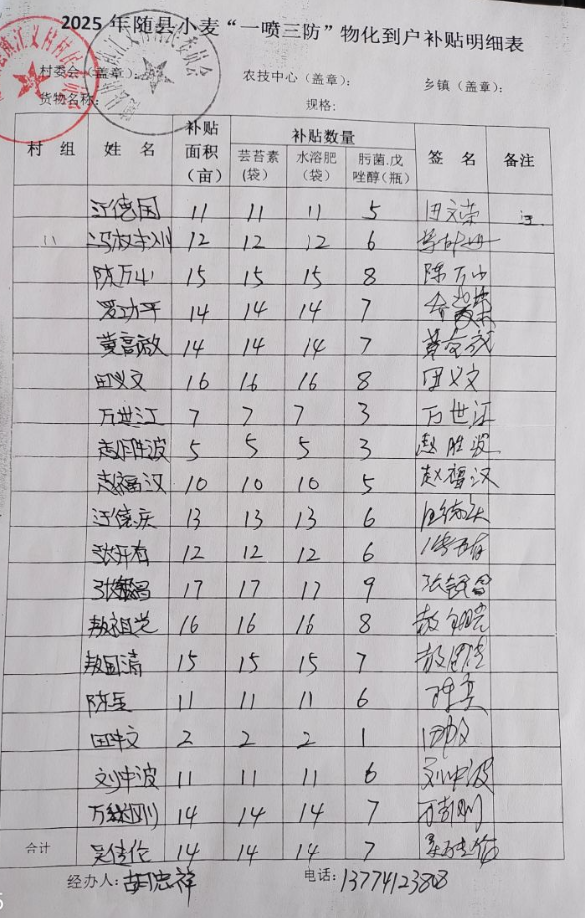 2025 年随县小麦“一喷三防”物化到户补贴明细表
村委会（盖章）： 农技中心（盖章）： 乡镇（盖章）：
货物名称： 规格：
村 组 姓 名 补贴面积（亩） 补贴数量 签 名 备注
芸苔素（袋） 水溶肥（袋） 肟菌.戊唑醇（瓶）
汪德国 11 11 11 5 田文荣
12 12 12 6
陈万山 15 15 15 8 陈万山
罗功平 14 14 14 7
黄高敏 14 14 14 7
田义文 16 16 16 8 田义文
万世江 7 7 7 3 万世江
赵胜波 5 5 5 3 赵胜波
赵福汉 10 10 10 5 赵福汉
汪德庆 13 13 13 6
张开有 12 12 12 6
17 17 17 9
敖祖党 16 16 16 8
敖国清 15 15 15 7 敖国清
陈兵 11 11 11 6
田中文 2 2 2 1
刘中波 11 11 11 6 刘中波
14 14 14 7
合计 吴传伦 14 14 14 7
经办人：胡忠祥 电话：